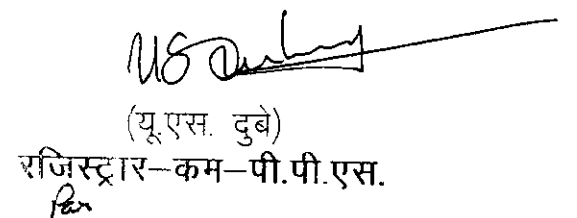 (यू.एस. दुबे)
रजिस्ट्रार–कम–पी.पी.एस.